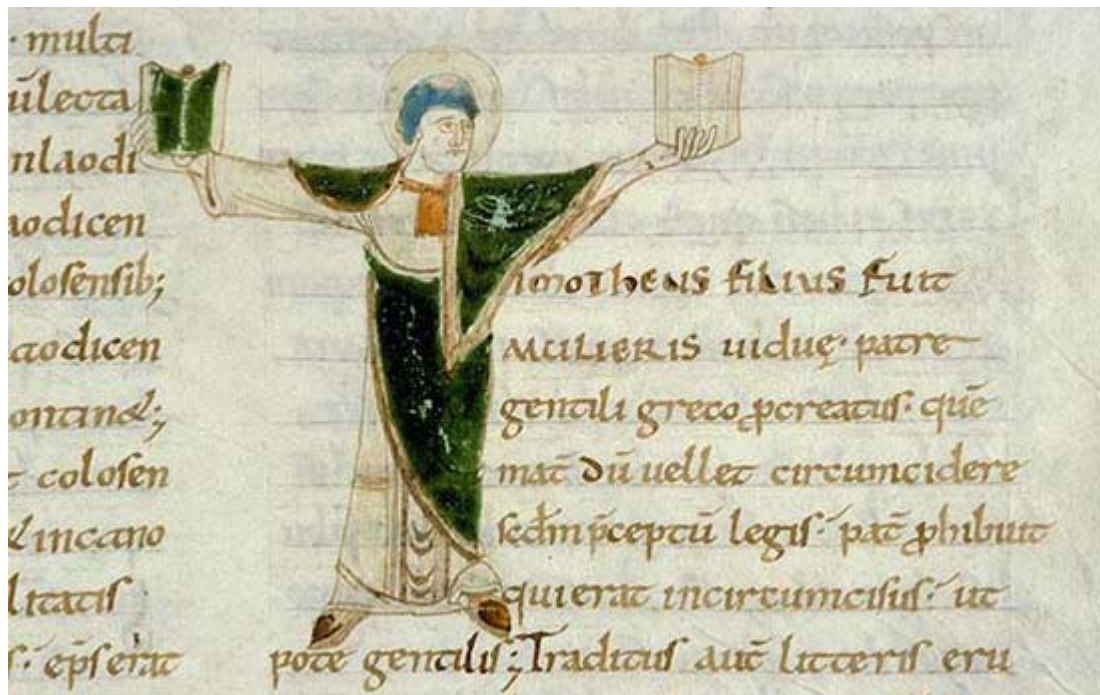 · multi
ūlecta
nlaodi
aodicen
olosensib;
aodicen
ontin&;
t colosen
& incano
litatis
s· ep̄s erat
imotheus filius fuit
mulieris uiduę· patre
gentili greco ꝓcreatus· quē
mat̄ dū uellet circumcidere
scd̄m p̄ceptū legis· pat̄ ꝓhibuit
qui erat incircumcisus· ut
pote gentilis; Traditus aut̄ litteris eru